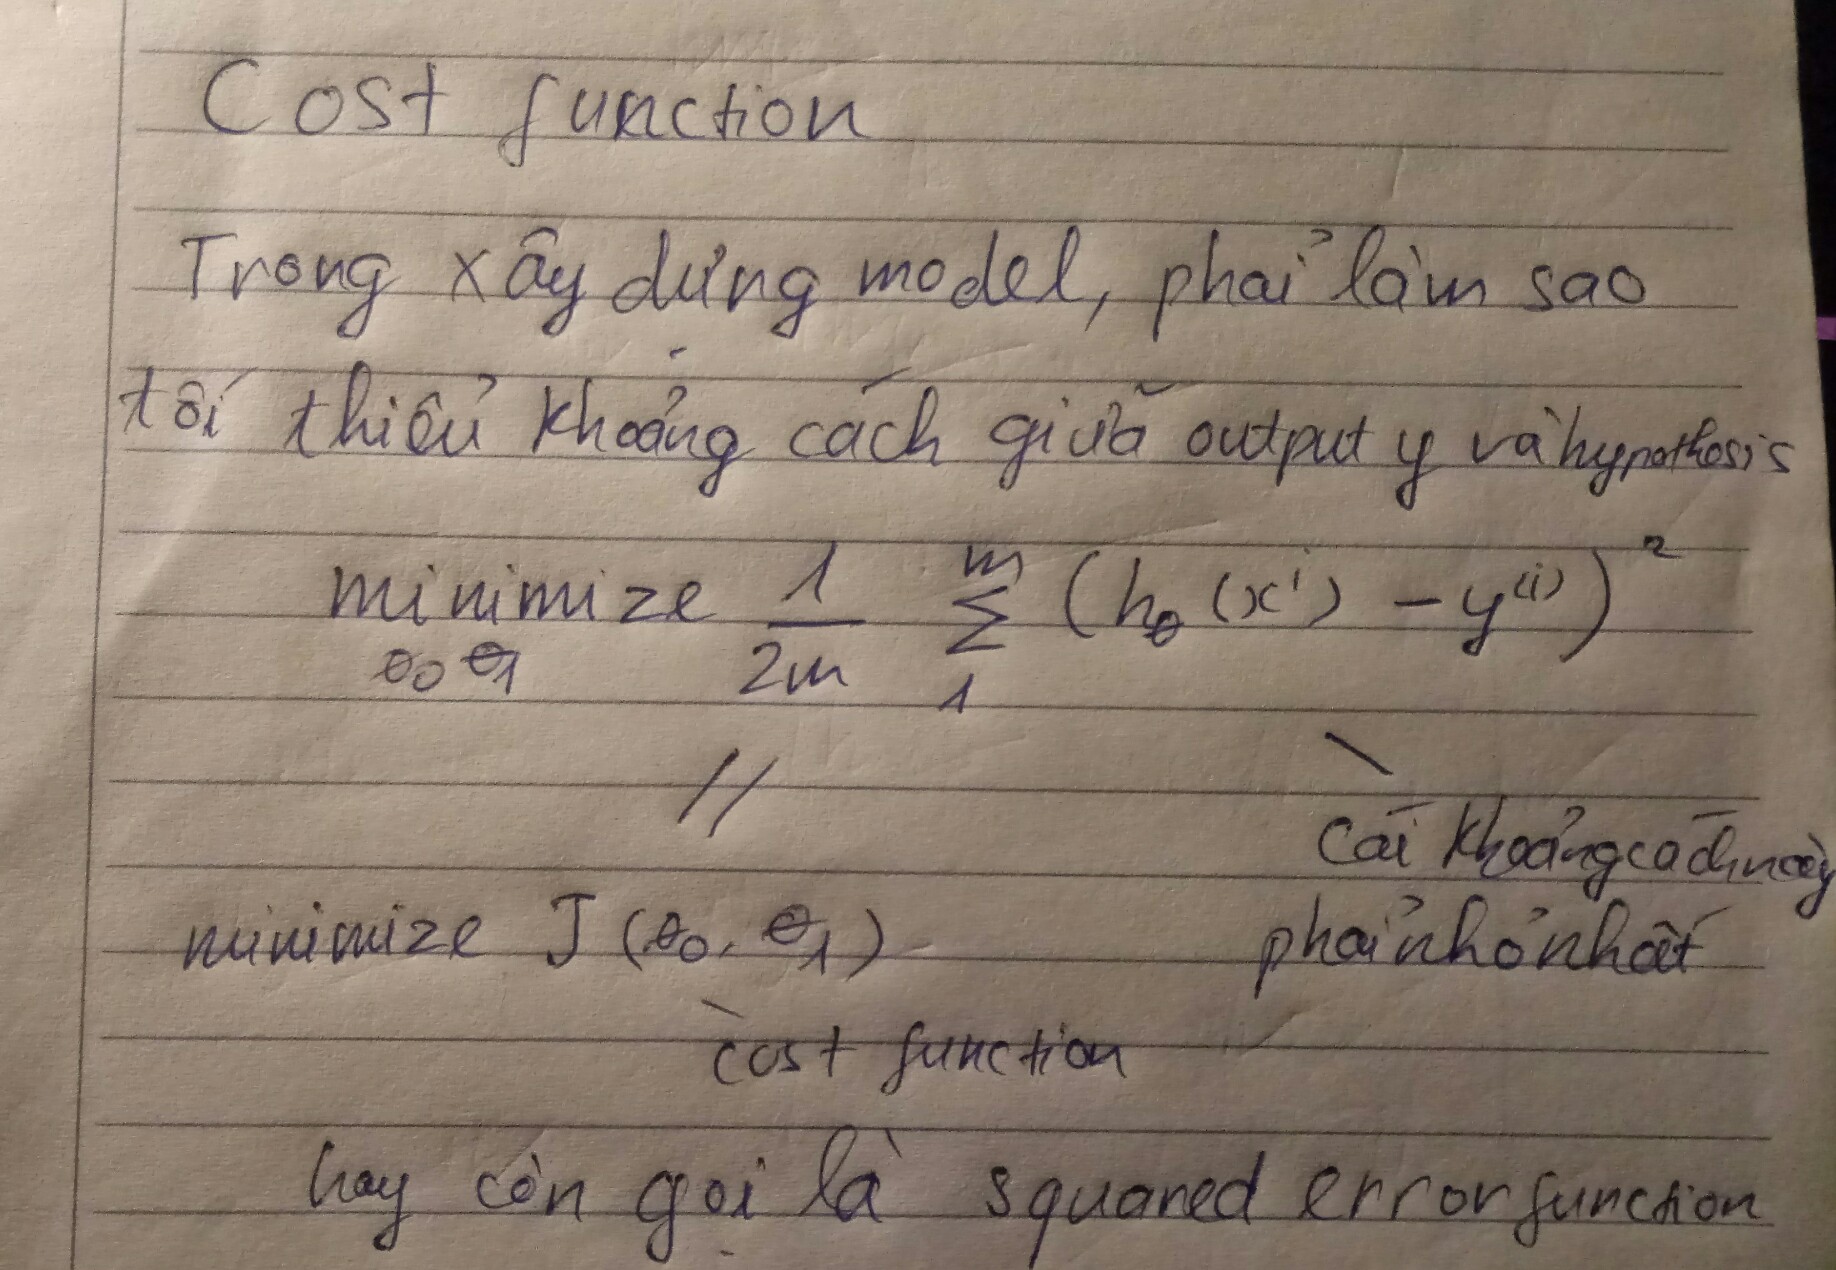 Cost function
Trong xây dựng model, phải làm sao
tối thiểu khoảng cách giữa output y và hypothesis
minimize 1/2m m Σ 1 (hθ(xⁱ) - y⁽ⁱ⁾)²
θ0 θ1
//
cái khoảng cách này
minimize J(θ0, θ1) phải nhỏ nhất
cost function
hay còn gọi là squared error function